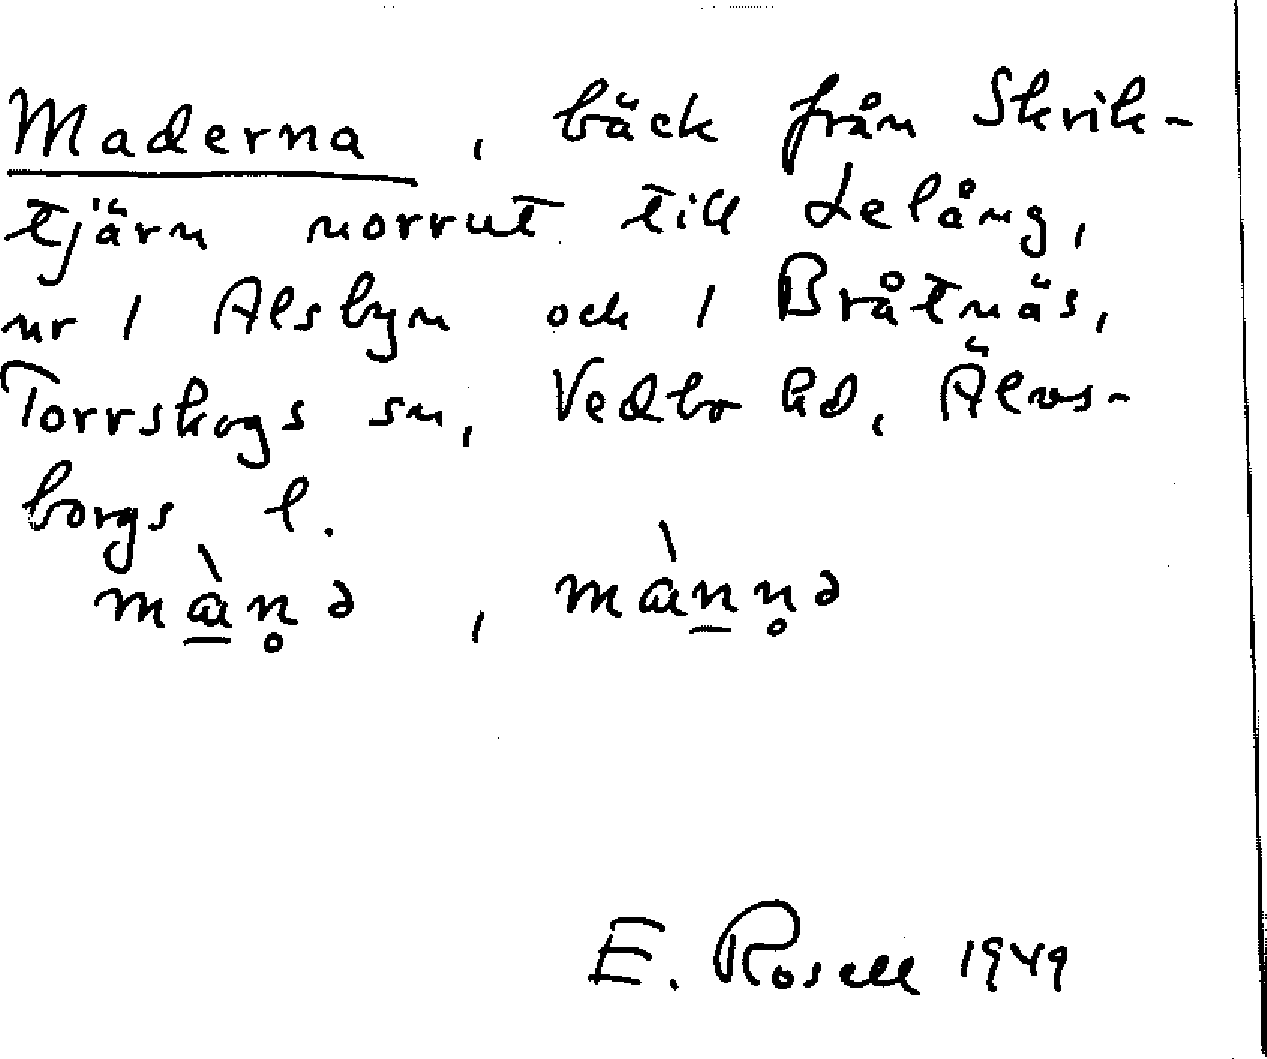 Maderna, bäck från Skrik-
tjärn norrut till Lelång,
nr 1 Alsbyn och 1 Bråtnäs,
Torrskogs sn, Vedbo hd, Älvs-
borgs l.
mà̱n̥ə, màṉn̥ə
E. Rosell 1949